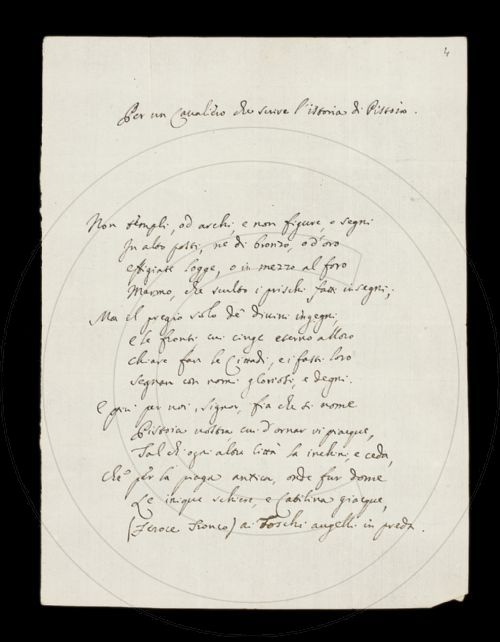 4
Per un Cavaliero che scrive l'istoria di Pistoia.
Non templi, od archi, e non figure, o segni
In alto posti, nè di bronzo, o d'oro
effigiate logge, o in mezzo al foro
Marmo, che sculto i prischi fatti insegni;
Ma il pregio solo de' divini ingegni,
e le fronti cui cinge eterno alloro
chiare fan le Cittadi, e i fatti loro
segnan con nomi gloriosi, e degni.
E più per voi, Signor, fia che si nome
Pistoia vostra cui d'ornar vi piacque,
Tal ch'ogni altra Città la inchini, e ceda,
Che per la piaga antica, onde fur dome
Le inique schiere, e Catilina giacque,
(Feroce Tronco) ai Toschi augelli in preda.